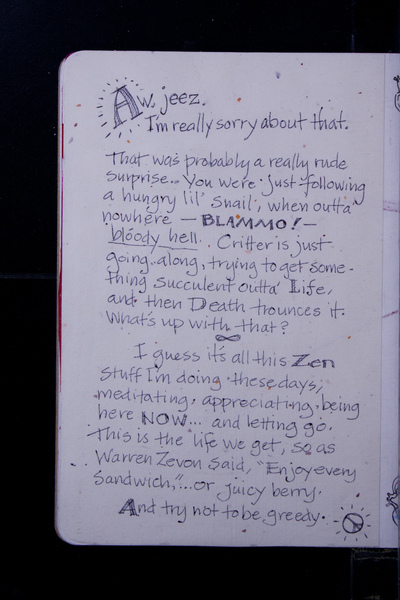 Aw, jeez.
I'm really sorry about that.
That was probably a really rude
surprise.. You were just following
a hungry lil' snail, when outta'
nowhere — BLAMMO! —
bloody hell.. Critter is just
going along, trying to get some-
thing succulent outta' Life,
and then Death trounces it.
What's up with that?
∞
I guess it's all this Zen
stuff I'm doing these days;
meditating, appreciating, being
here NOW... and letting go.
This is the life we get, so as
Warren Zevon said, "Enjoy every
sandwich,"...or juicy berry.
And try not to be greedy.